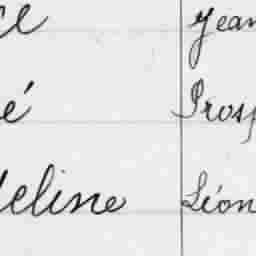 ce Jean
é Prosp
deline Léon